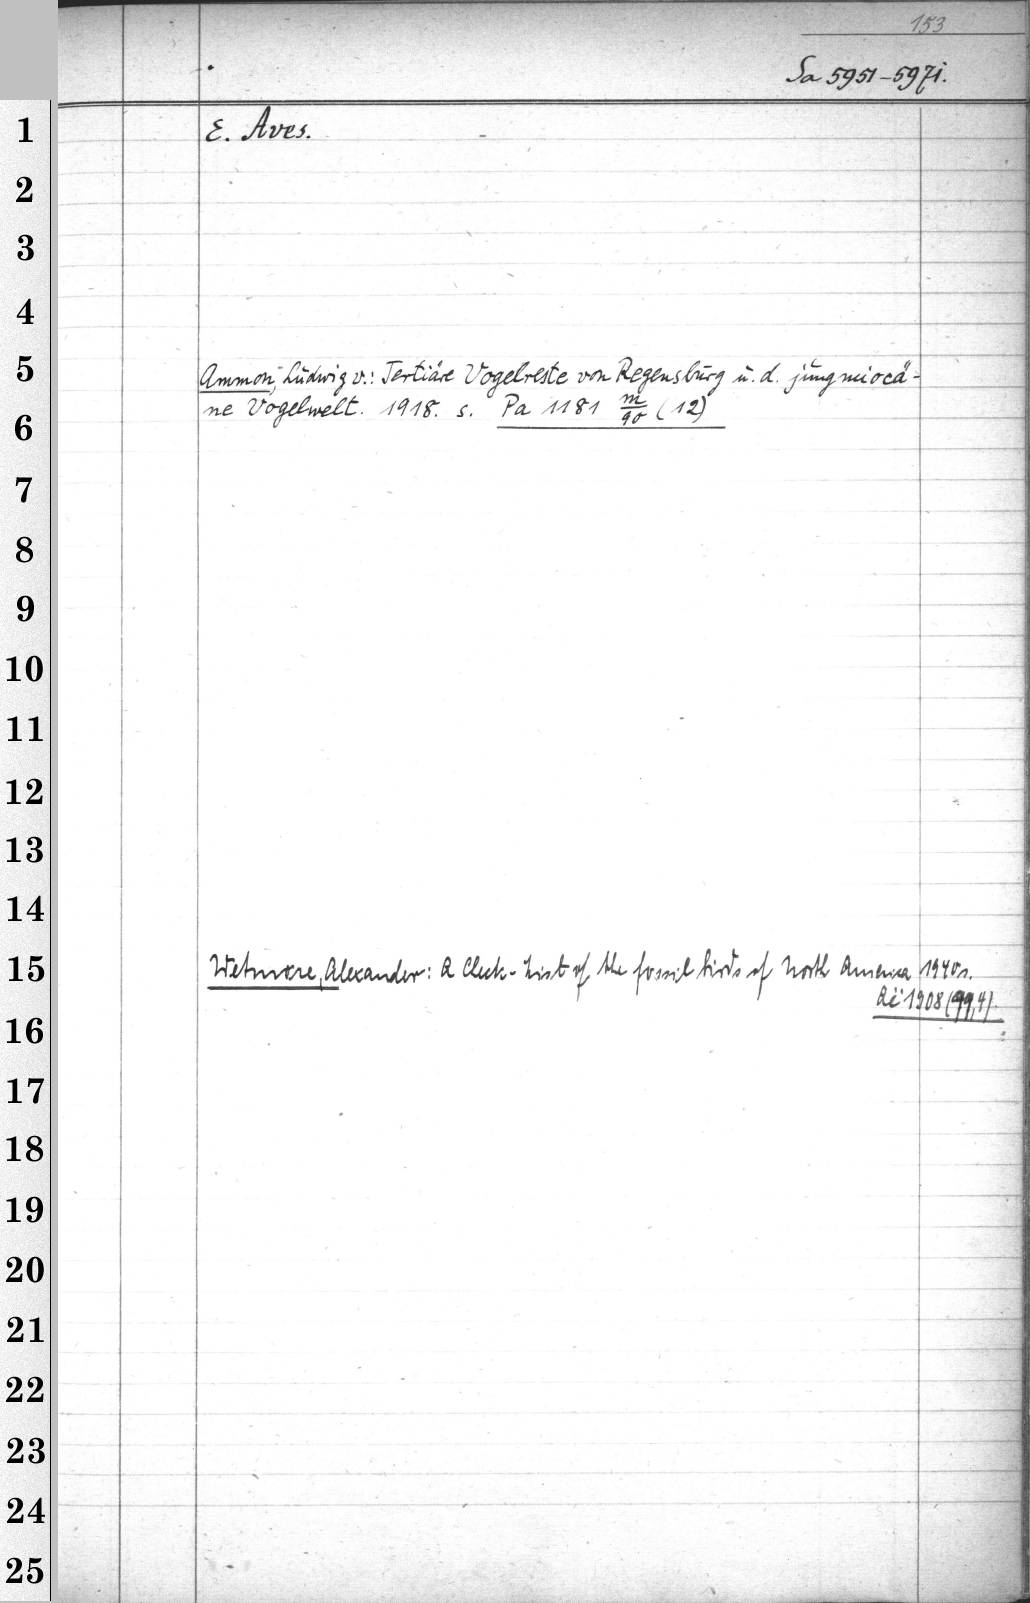 153
Sa 5951-597i.
1
E. Aves.
2
3
4
5
Ammon, Ludwig v.: Tertiäre Vogelreste von Regensburg u. d. jungmiocä-
ne Vogelwelt. 1918. s. Pa 1181 m/90 (12)
6
7
8
9
10
11
12
13
14
15
Wetmore, Alexander: A Check-List of the fossil birds of North America 1940 s.
Aë 1908 (99,4).
16
17
18
19
20
21
22
23
24
25